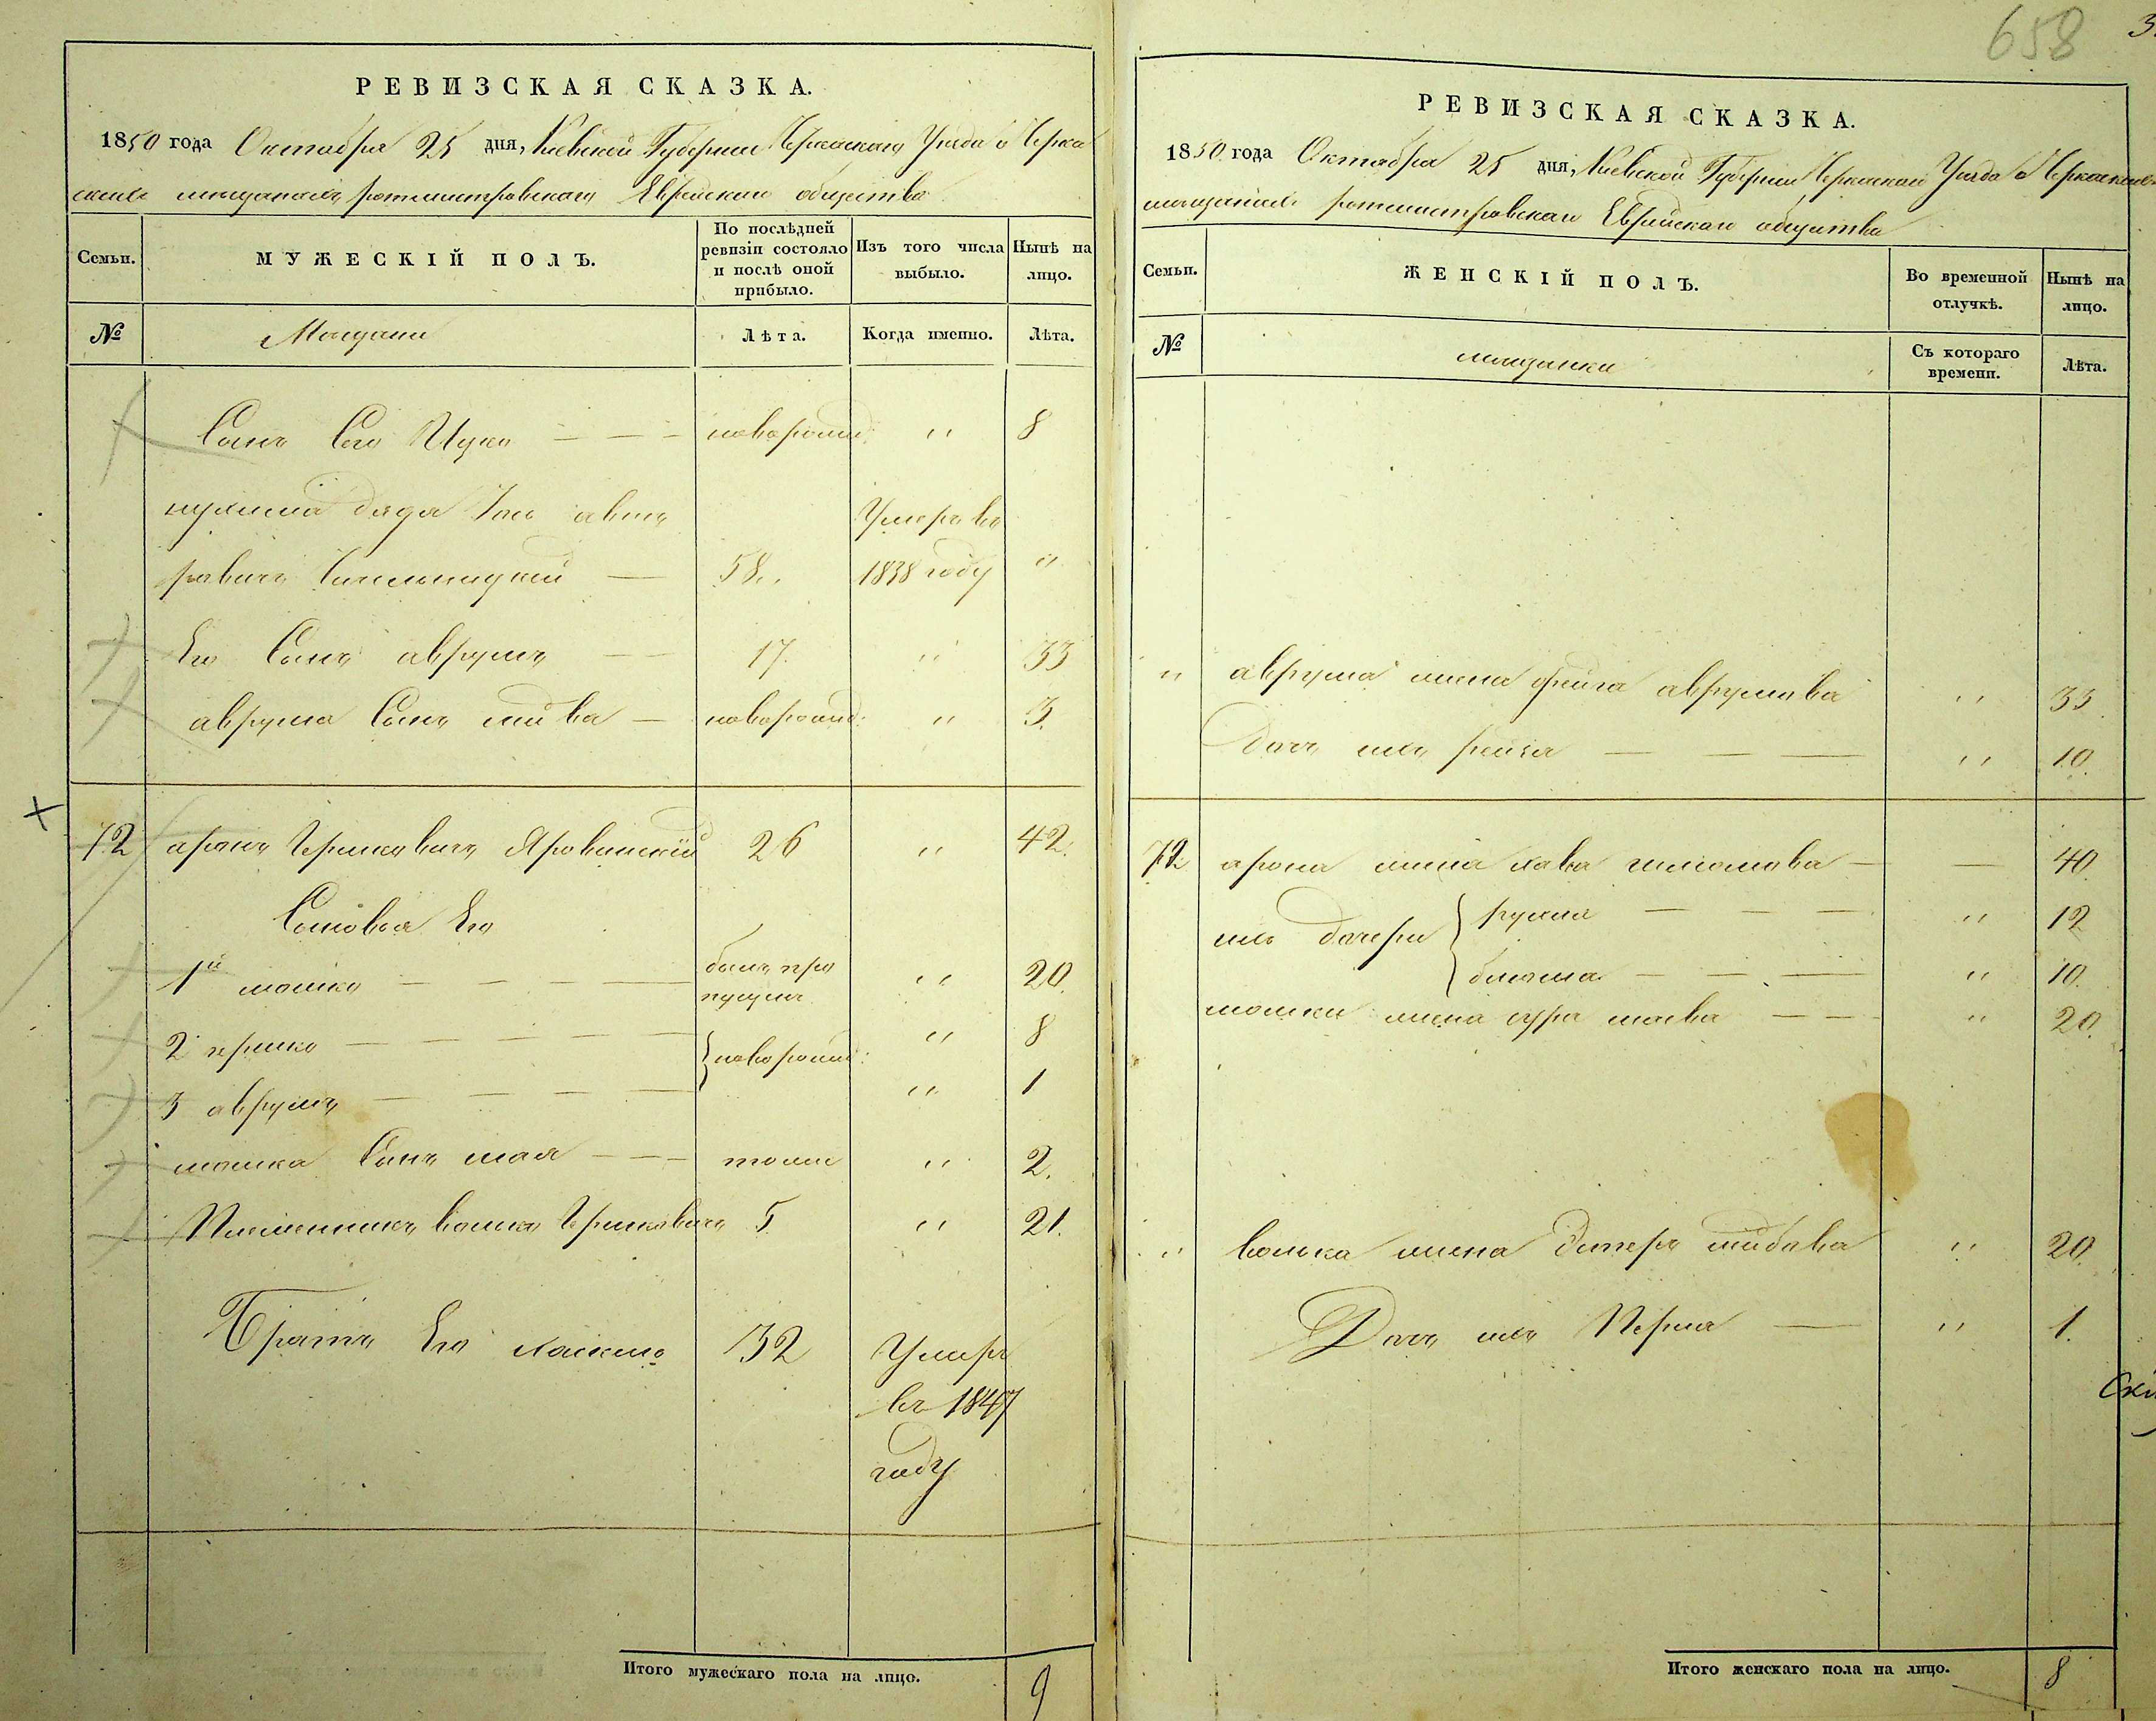 658
3
РЕВИЗСКАЯ СКАЗКА.
1850 года Октября 25 дня, Киевской Губернии Черкаскаго Уезда о Черка
скихъ мещанахъ ротмистровскаго Еврейскаго общества
Семьи.
МУЖЕСКІЙ ПОЛЪ.
По послѣдней ревизіи состояло и послѣ оной прибыло.
Изъ того числа выбыло.
Нынѣ на лицо.
№
Мещани
Лѣта.
Когда именно.
Лѣта.
Сынъ Его Ицко — — — новорожд: " 8
дядя авш
Умеръ въ
ровичъ 58 " 1838 году "
Его Сынъ аврумъ — 17. " 33
аврума Сынъ — новорожд: " 3.
72 аронъ Гершковичъ Яровинскій 26 " 42.
Сыновья Его
1й мошко — — — — былъ про
пущенъ " 20.
2 гершко — — — — " 8
новорожд:
3 аврумъ — — — — " 1
мошка Сынъ — — — тоже " 2.
Племянникъ волько Гершковичъ 5 " 21.
Братъ Его 32 Умеръ
въ 1847
году
Итого мужескаго пола на лицо. 9
РЕВИЗСКАЯ СКАЗКА.
1850 года Октября 25 дня, Киевской Губернии Черкаскаго Уезда о Черкаскихъ
мещанахъ ротмистровскаго Еврейскаго общества
Семьи.
ЖЕНСКІЙ ПОЛЪ.
Во временной отлучкѣ.
Нынѣ на лицо.
№
мещанки
Съ котораго времени.
Лѣта.
" аврума жена фейга аврумова " 33
Дочь ихъ рейза — — — " 10.
72 арона жена хава шлиомова — — 40
ихъ дочери
рухля — — — " 12
блюма — — — " 10.
мошки жена сура — — " 20.
" волька жена Эстеръ " 20.
Дочь ихъ Перля — " 1.
Итого женскаго пола на лицо. 8